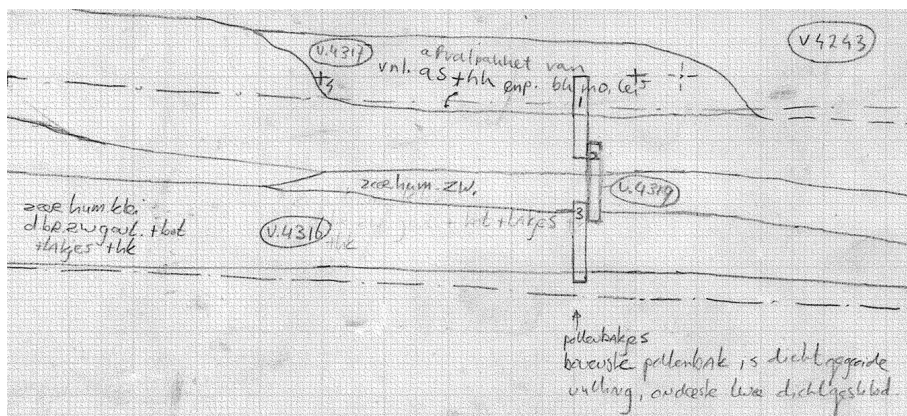 v.4317
afvalpakket van
vnl. as + hk
enp. bk mo. le
v4243
+4
+5
1
2
3
zeer hum. zw.
v.4319
zeer hum klei
dbr. zw gevl. + bot
+ takjes + hk
v.4316
+ bot + takjes +
+ hk
pollenbakjes
bovenste pollenbak is dicht gegooide
vulling, onderste twee dichtgeslibd